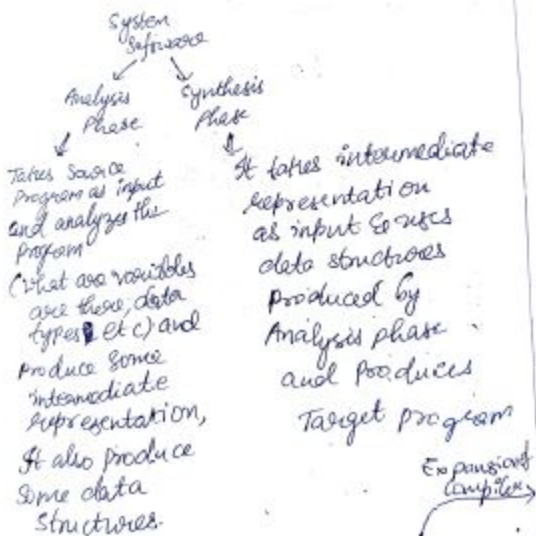 System
Software
Analysis
Phase
Synthesis
Phase
Takes Source
Program as input
and analyzes the
Program
(what are variables
are there, data
types etc) and
Produce Some
intermediate
representation,
It also produce
Some data
Structures.
It takes intermediate
representation
as input & uses
data structures
Produced by
Analysis phase
and Produces
Target program
Expansion of
Compiler